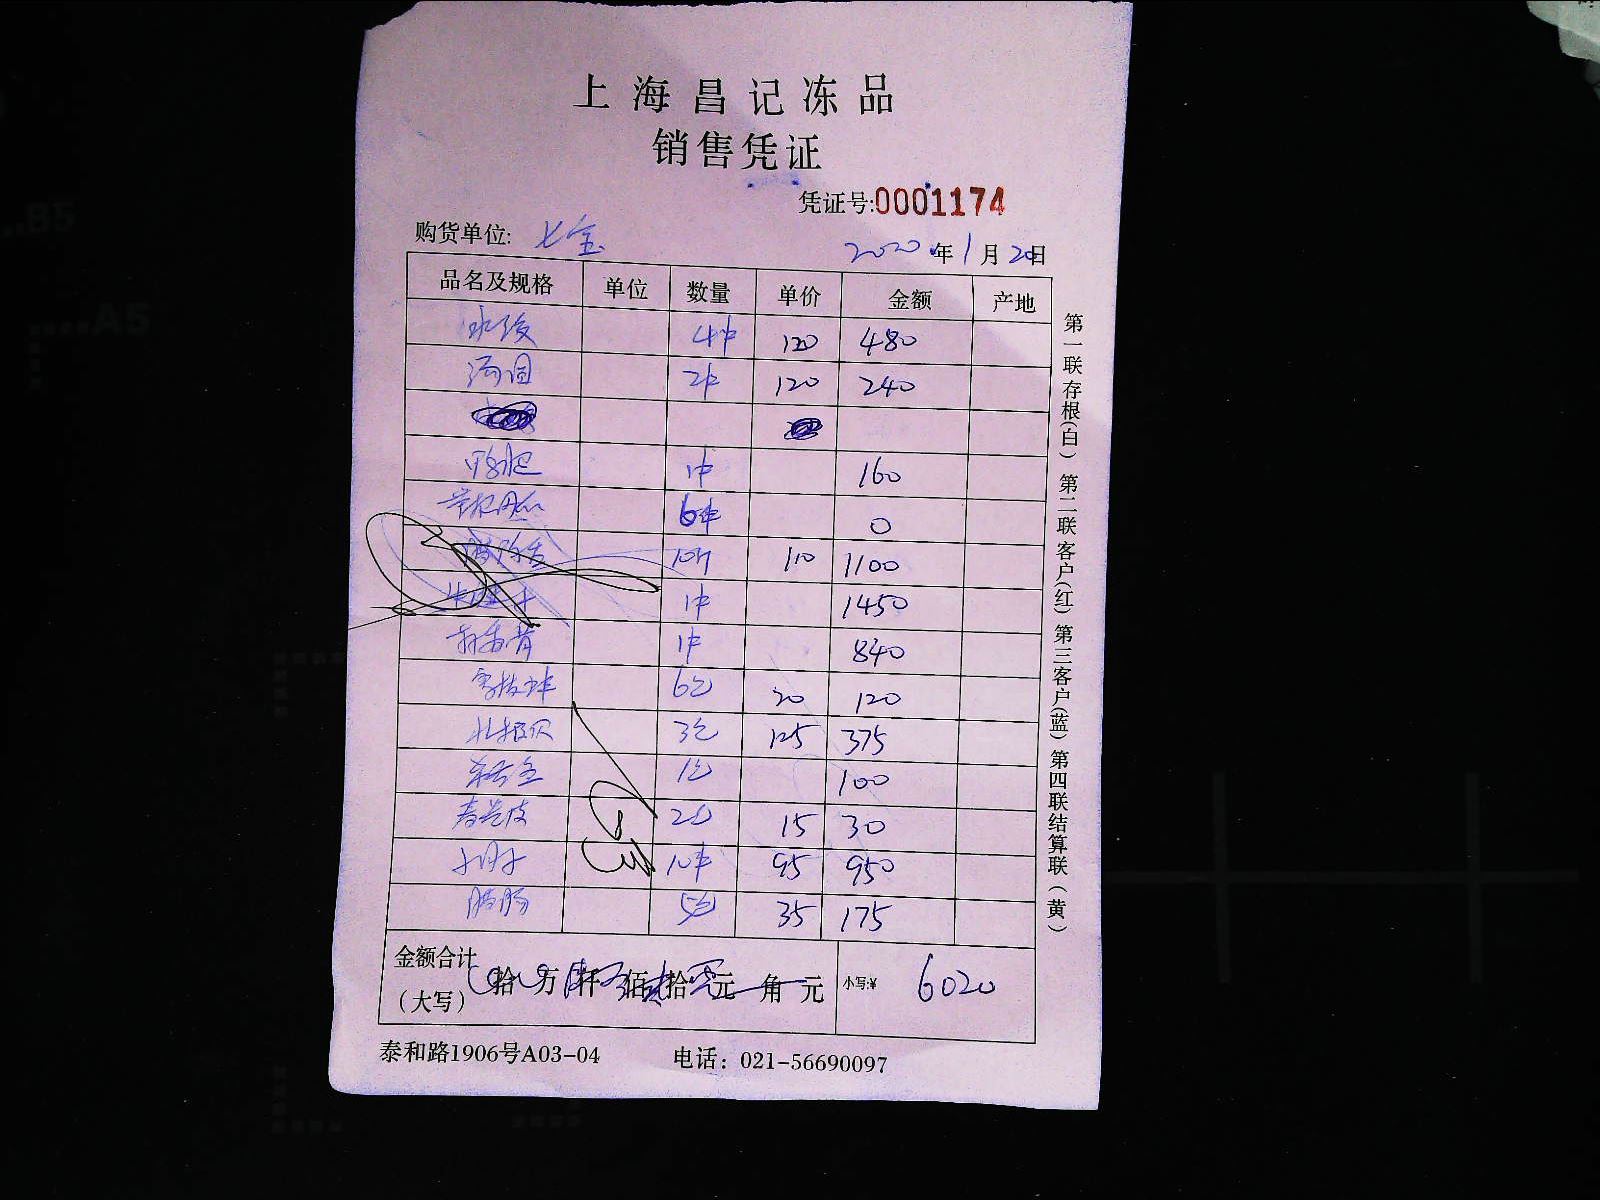 上海昌记冻品
销售凭证
凭证号:0001174
购货单位: 七宝 2020年1月20日
品名及规格 单位 数量 单价 金额 产地
4件 120 480
汤圆 2件 120 240
1件 160
6件 0
10斤 110 1100
1件 1450
1件 840
6包 20 120
北极贝 3包 125 375
1包 100
春卷皮 2包 15 30
10件 95 950
腊肠 5包 35 175
金额合计(大写) 拾 万 仟 佰 拾 元 角 元 小写:¥ 6020
泰和路1906号A03-04 电话: 021-56690097
第一联存根(白) 第二联客户(红) 第三客户(蓝) 第四联结算联(黄)